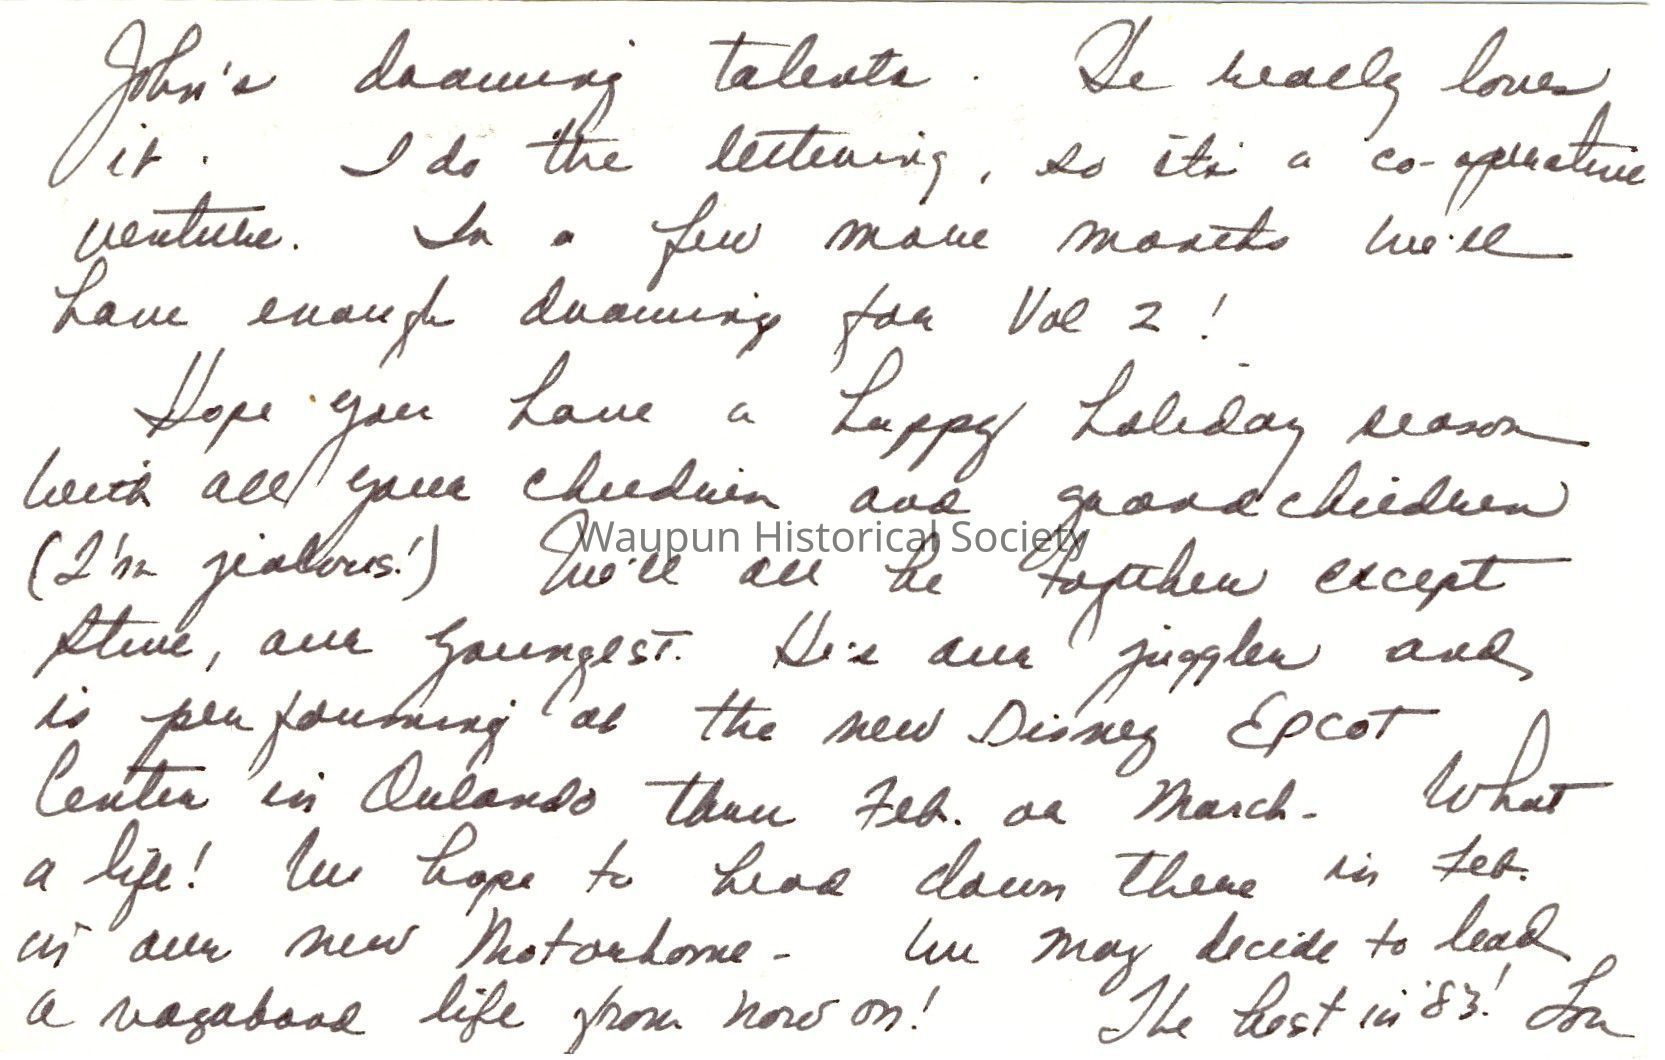 John's drawing talents. He really loves
it. I do the lettering, so it's a co-operative
venture. In a few more months we'll
have enough drawings for Vol 2!
Hope you have a happy holiday season
with all your children and grandchildren
(I'm jealous!) We'll all be together except
Steve, our youngest. He's our juggler and
is performing at the new Disney EPCOT
Center in Orlando thru Feb. or March. What
a life! We hope to head down there in Feb.
in our new Motorhome - We may decide to lead
a vagabond life from now on! The best in '83! Lou
Waupun Historical Society